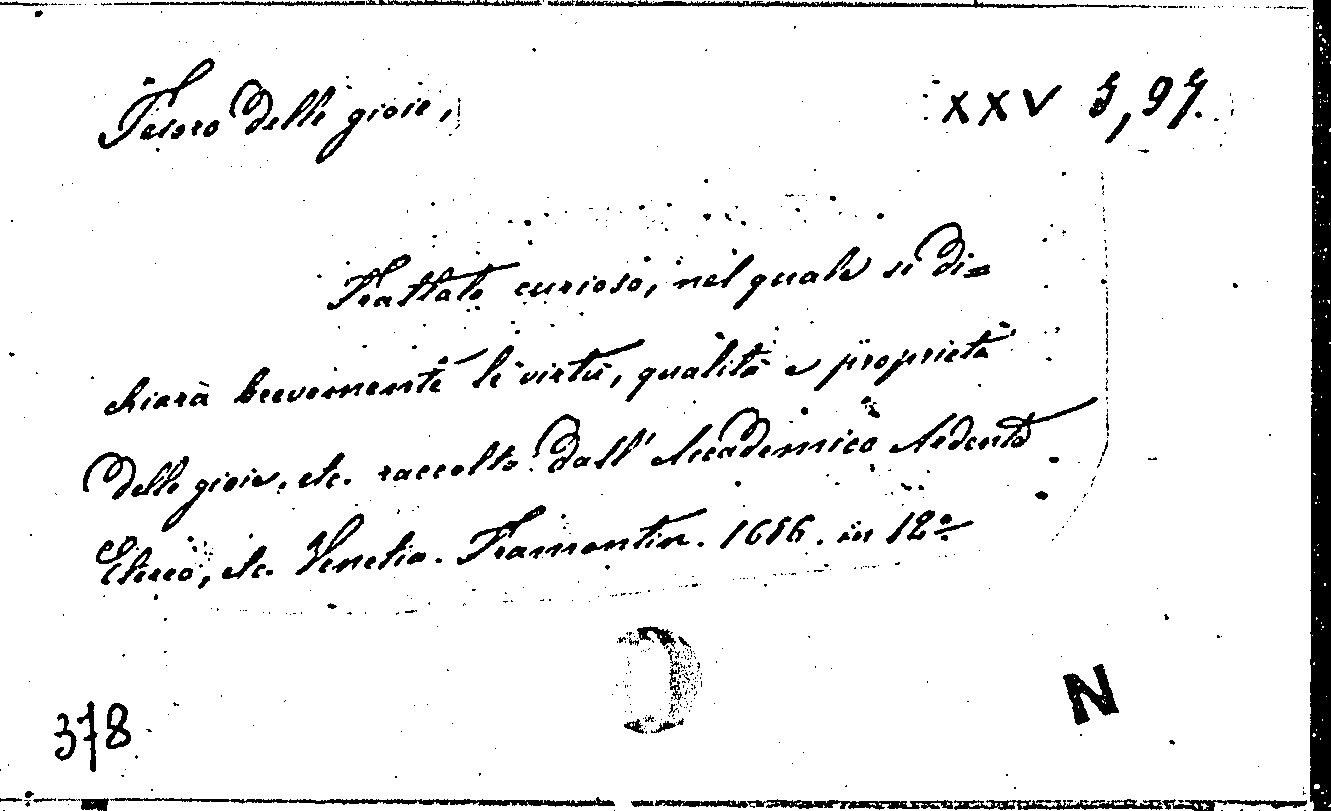 Tesoro delle gioie,
XXV 5,97.
Trattato curioso, nel quale si di=
chiara brevemente le virtù, qualità e proprietà
delle gioie, etc. raccolto dall' Accademico Ardente
Etereo, etc. Venetia. Tramontin. 1686. in 12º
N
378